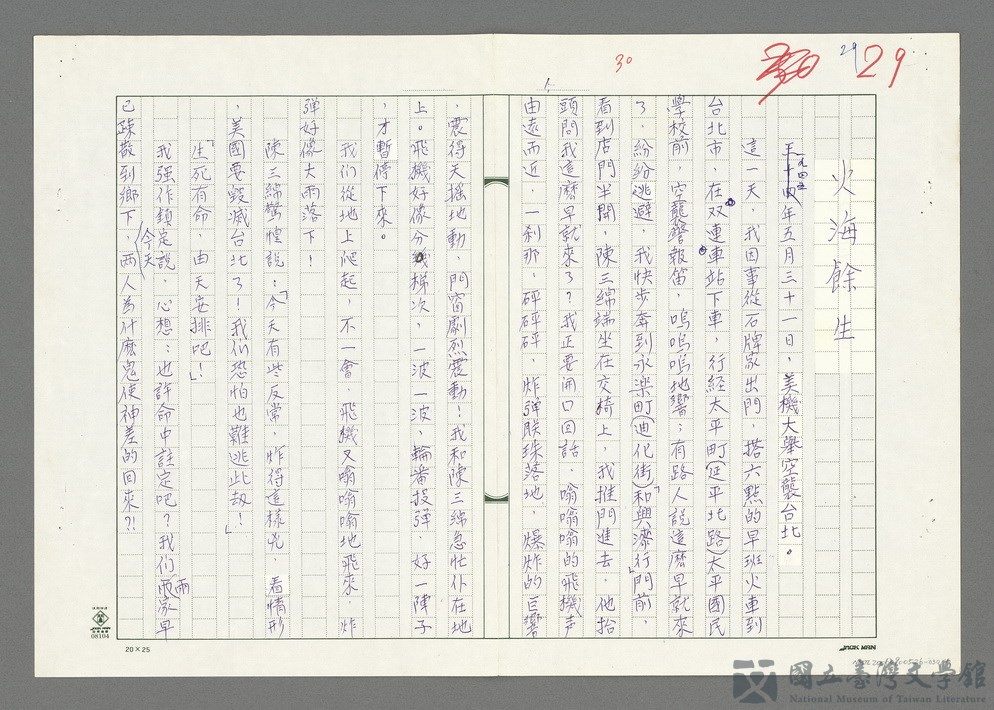 29
29
30
火海餘生
一九四五年五月三十一日，美機大舉空襲台北。
這一天，我因事從石牌家出門，搭六點的早班火車到
台北市，在双連車站下車，行經太平町(延平北路)太平國民
學校前，空襲警報笛，嗚嗚嗚地響；有路人說這麼早就來
了，紛紛逃避，我快步奔到永樂町(迪化街)和「興濂行」門前，
看到店門半開，陳三綿端坐在交椅上，我推門進去，他抬
頭問我這麼早就來了？我正要開口回話，嗡嗡嗡的飛機声
由遠而近，一刹那，砰砰砰，炸弹联珠落地，爆炸的巨響
，震得天搖地動，門窗劇烈震動！我和陳三綿急忙仆在地
上。飛機好像分梯次，一波一波，輪番投弹，好一陣子
，才暫停下來。
我们從地上爬起，不一會，飛機又嗡嗡嗡地飛來，炸
弾好像大雨落下！
陳三綿驚惶說：「今天有些反常，炸得這樣兇，看情形
，美國要毀滅台北了！我们恐怕也難逃此劫！」
「生死有命，由天安排吧！」
我强作鎮定說，心想：也許命中註定吧？我们兩家早
已疎散到鄉下，今天兩人為什麼鬼使神差的回來?!
20×25
JACK MAN
08104
國立臺灣文學館
National Museum of Taiwan Literature